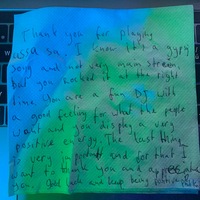 Thank you for playing
us a su. I know it's a gypsy
song and not very main stream,
but you rocked it at the right
time. You are a fun DJ with
a good feeling for what the people
want and you display a very
positive energy. The last thing
is very important and for that I
want to thank you and appreciate
you. Good luck and keep being